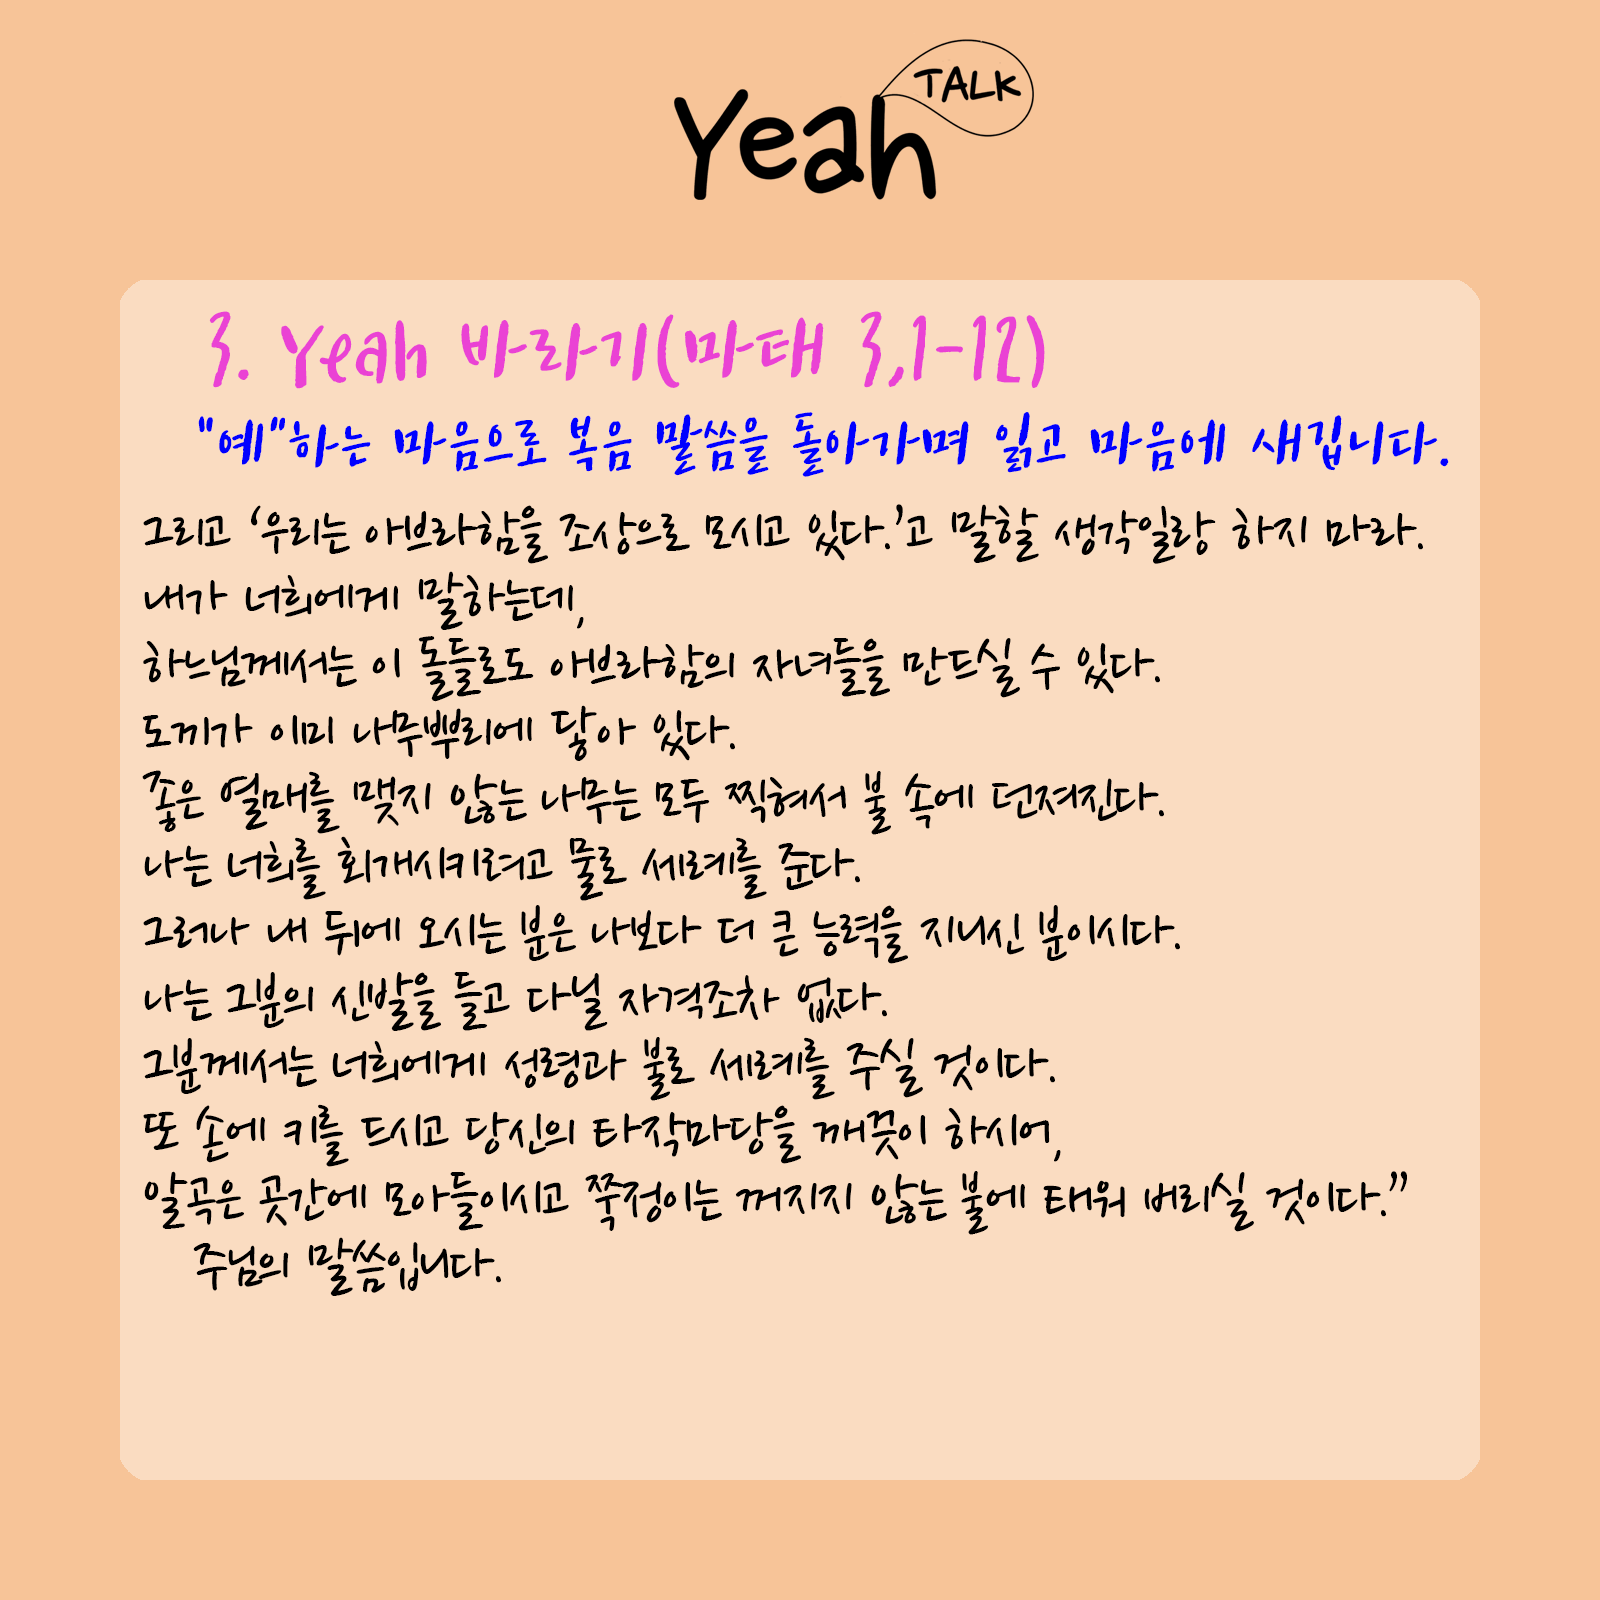 Yeah TALK
3. Yeah 바라기(마태 3,1-12)
"예"하는 마음으로 복음 말씀을 돌아가며 읽고 마음에 새깁니다.
그리고 ‘우리는 아브라함을 조상으로 모시고 있다.’고 말할 생각일랑 하지 마라.
내가 너희에게 말하는데,
하느님께서는 이 돌들로도 아브라함의 자녀들을 만드실 수 있다.
도끼가 이미 나무뿌리에 닿아 있다.
좋은 열매를 맺지 않는 나무는 모두 찍혀서 불 속에 던져진다.
나는 너희를 회개시키려고 물로 세례를 준다.
그러나 내 뒤에 오시는 분은 나보다 더 큰 능력을 지니신 분이시다.
나는 그분의 신발을 들고 다닐 자격조차 없다.
그분께서는 너희에게 성령과 불로 세례를 주실 것이다.
또 손에 키를 드시고 당신의 타작마당을 깨끗이 하시어,
알곡은 곳간에 모아들이시고 쭉정이는 꺼지지 않는 불에 태워 버리실 것이다.”
주님의 말씀입니다.